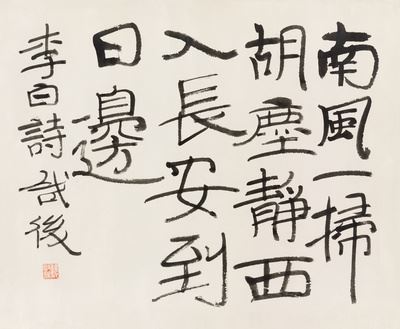 南風一掃
胡塵靜西
入長安到
日邊
李白詩哉後